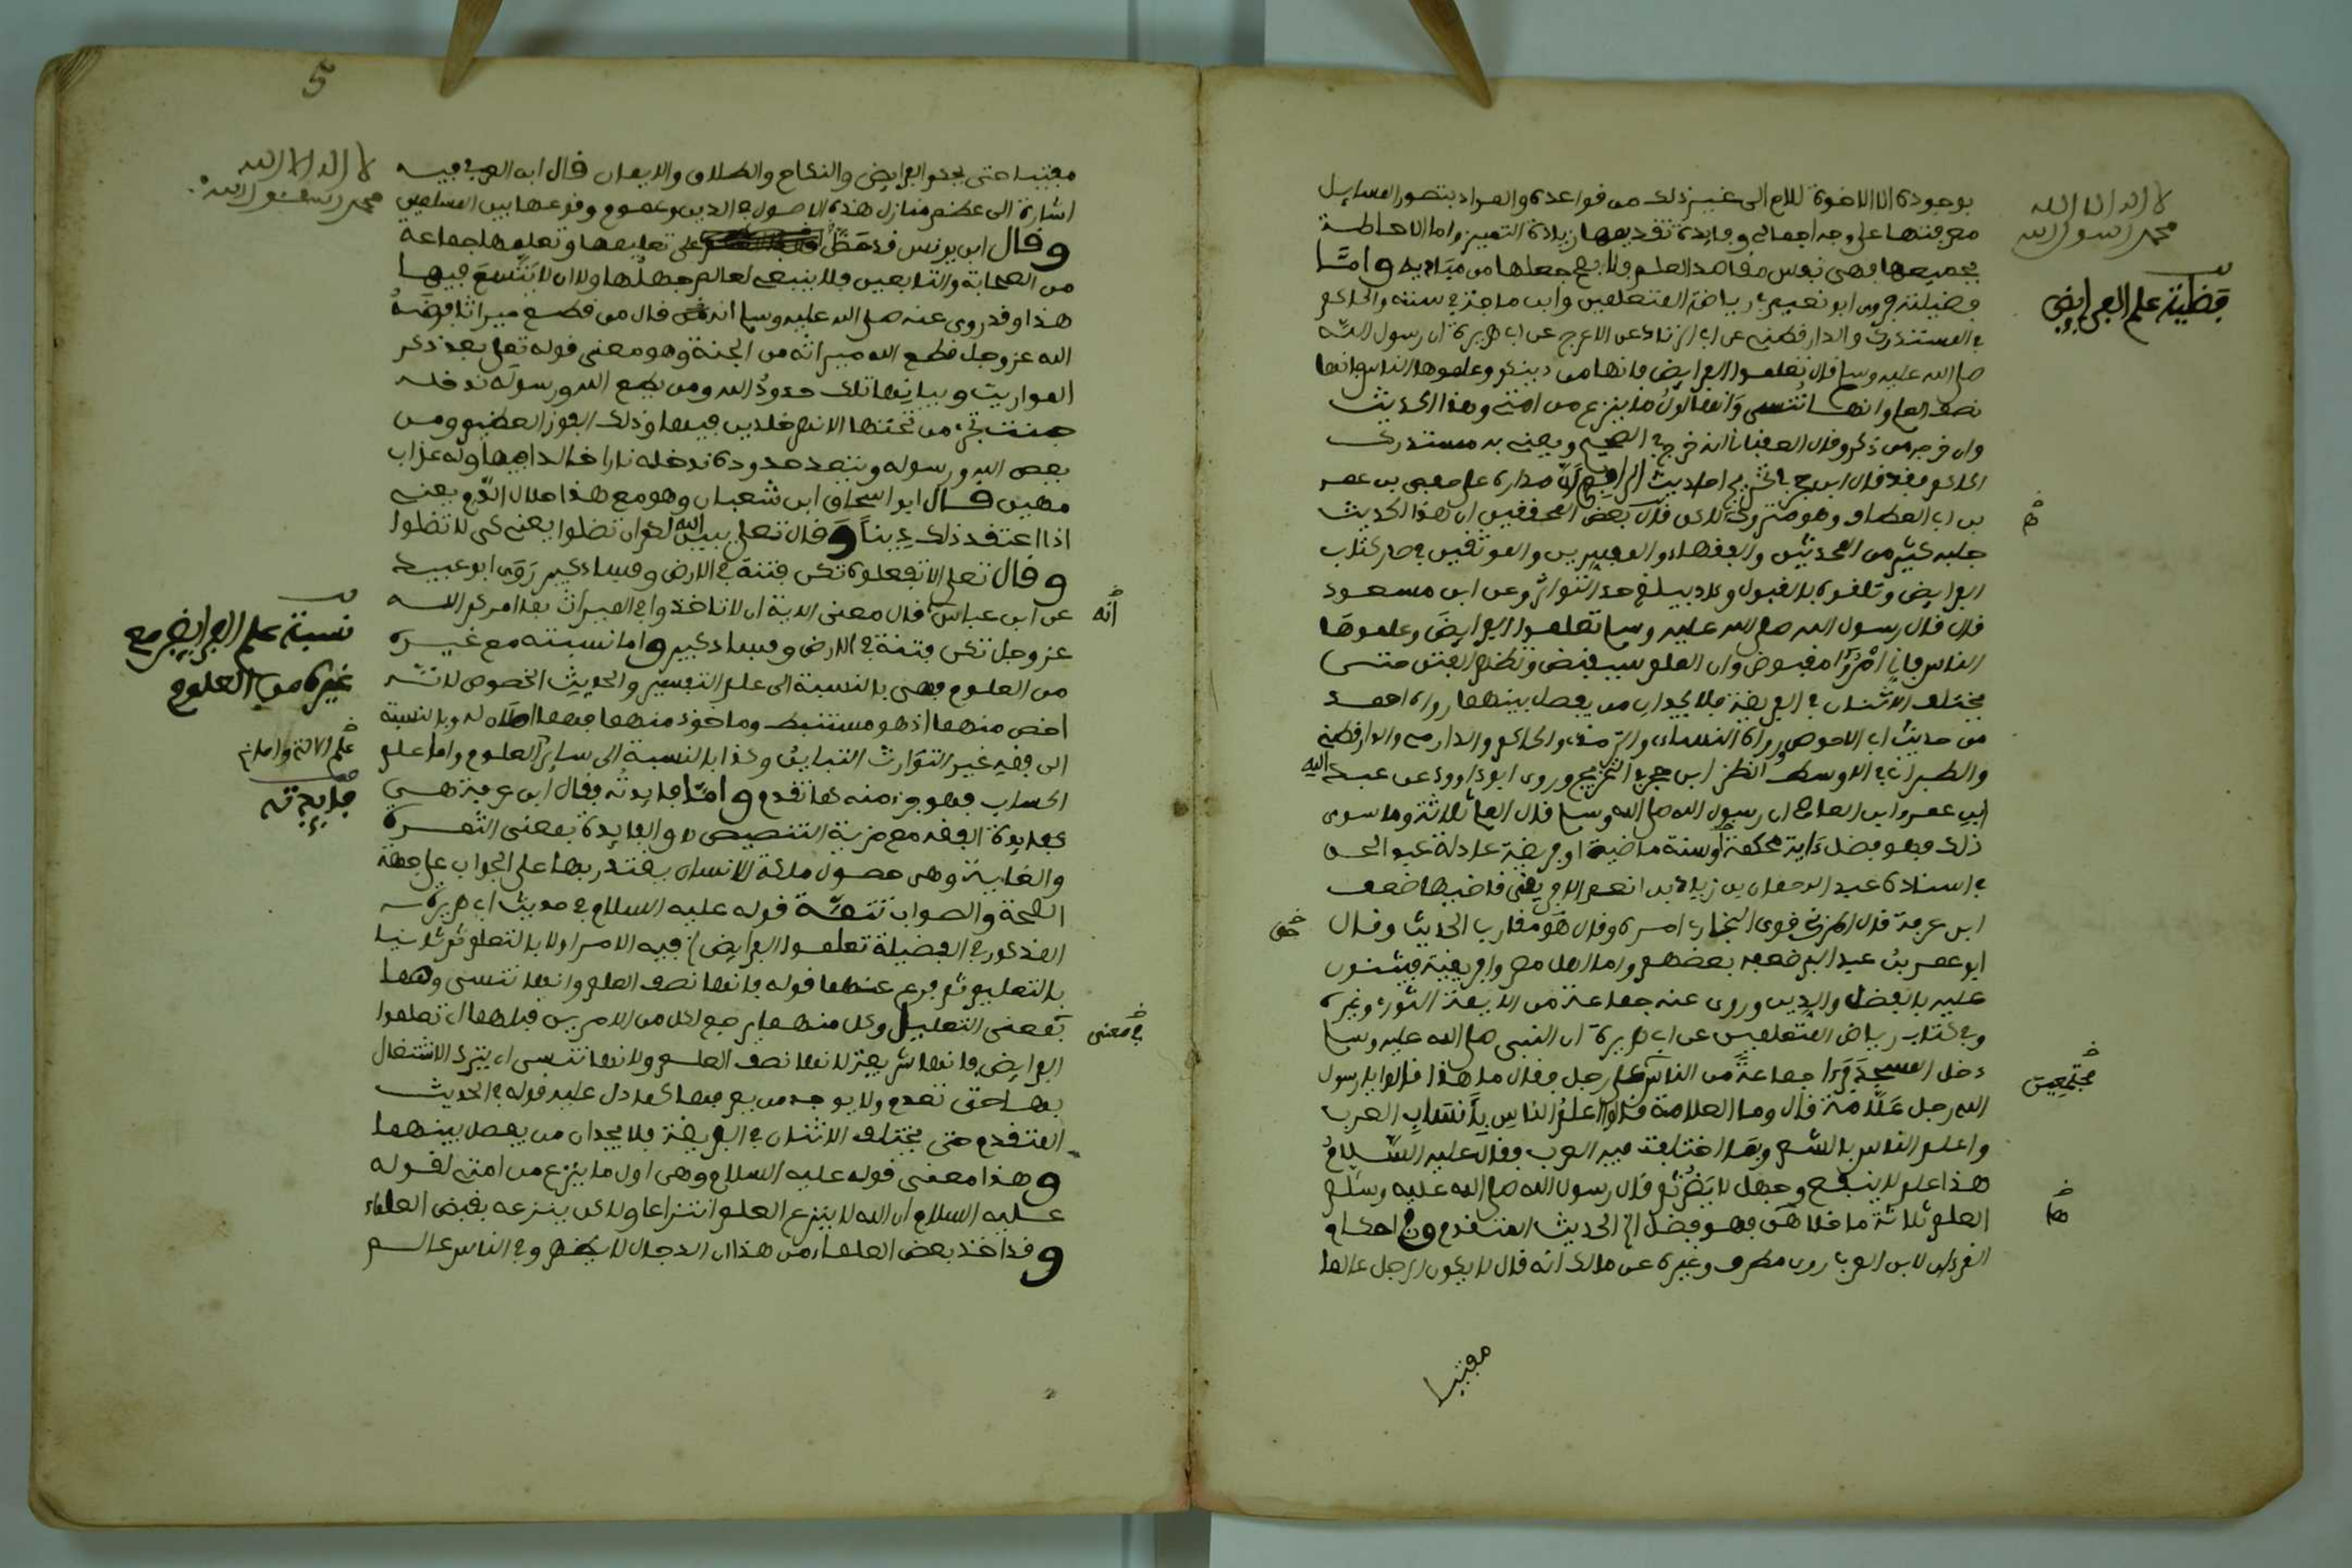 لا اله الا الله
محمد رسول الله
بوجوده انا الاخوة للام الى غير ذلك من قواعده والمراد بتصور المسايل
معرفتها على وجه اجمالي وفايدة تقديمها زيادة التمييز واما الاحاطة
بجميعها فهي نفس مقاصد العلم فلا يصح جعلها من مباديه واما
فضيلته فروى ابو نعيم في رياضة المتعلمين وابن ماجة في سننه والحاكم
فضيلة علم الفرايض
في المستدرك والدارقطني عن ابي الزناد عن الاعرج عن ابي هريرة ان رسول الله
صلى الله عليه وسلم قال تعلموا الفرايض فانها من دينكم وعلموها الناس فانها
نصف العلم وانها تنسى وانها اول ما ينزع من امتي وهذا الحديث
وان خرجه من ذكر وقال العقباني انه خرج في الصحيح ويعني به مستدرك
الحاكم فقد قال ابن حجر في تخريج احاديث الرافعي ان مداره على حفص بن عمر
بن ابي العطاف وهو متروك لاكن قال بعض المحققين ان هذا الحديث
جلبه كثير من المحدثين والفقهاء والمفسرين والموثقين في صدر كتاب
الفرايض وتلقوه بالقبول وكاد يبلغ حد التواتر وعن ابن مسعود
قال قال رسول الله صلى الله عليه وسلم تعلموا الفرايض وعلموها
الناس فاني امرؤ مقبوض وان العلم سيقبض وتظهر الفتن حتى
يختلف الاثنان في الفريضة فلا يجدان من يفصل بينهما رواه احمد
من حديث ابي الاحوص ورواه النسائي والترمذي والحاكم والدارمي والدارقطني
والطبراني في الاوسط انظر ابن حجر في التخريج وروى ابو داوود عن عبد الله
ابن عمرو ابن العاص ان رسول الله صلى الله وسلم قال العلم ثلاثة وما سوى
ذلك فهو فضل ءاية محكمة او سنة ماضية او فريضة عادلة عبد الحق
في اسناده عبد الرحمان بن زياد بن انعم الافريقي قاضيها ضعف
ابن عرفة قال المزني قوى البخاري امره وقال هو مقارب الحديث وقال
ابو عمر بن عبد البر ضعفه بعضهم واما اهل مصر وافريقية فيثنون
عليه بالفضل والدين وروى عنه جماعة من الايمة الثوري وغيره
وفي كتاب رياض المتعلمين عن ابي هريرة ان النبي صلى الله عليه وسلم
دخل المسجد فرءا جماعة من الناس على رجل فقال ما هذا قالوا يا رسول
مجتمعين
الله رجل علامة قال وما العلامة قالوا اعلم الناس بانساب العرب
واعلم الناس بالشعر وبما اختلفت فيه العرب فقال عليه السلام
هذا علم لا ينفع وجهل لا يضر ثم قال رسول الله صلى الله عليه وسلم
العلم ثلاثة ما خلاهن فهو فضل الخ الحديث المتقدم وفي احكام
القرءان لابن العربي روى مطرف وغيره عن مالك انه قال لا يكون الرجل عالما
مفتيا
5
لا اله الا الله
محمد رسول الله
مفتيا حتى يحكم الفرايض والنكاح والطلاق والايمان قال ابن العربي فيه
اشارة الى عظم منازل هذه الاصول في الدين وعموم وقوعها بين المسلمين
وقال ابن يونس قد حض على تعليمها وتعلمها جماعة
من الصحابة والتابعين فلا ينبغي لعالم جهلها ولا ان لا يتسع فيها
هذا وقد روي عنه صلى الله عليه وسلم انه قال من قطع ميراثا فرضه
الله عز وجل قطع الله ميراثه من الجنة وهو معنى قوله تعلى بعد ذكر
المواريث وبيانها تلك حدود الله ومن يطع الله ورسوله ندخله
جنت تجري من تحتها الانهر خلدين فيها وذلك الفوز العظيم ومن
يعص الله ورسوله ويتعد حدوده ندخله نارا خالدا فيها وله عذاب
مهين قال ابو اسحاق ابن شعبان وهو مع هذا حلال الدم يعني
اذا اعتقد ذلك دينا وقال تعلى يبين الله لكم ان تضلوا يعني كي لا تضلوا
وقال تعلى الا تفعلوه تكن فتنة في الارض وفساد كبير روى ابو عبيد
عن ابن عباس قال معنى الاية ان لا تاخذوا في الميراث بما امركم الله
انه
عز وجل تكن فتنة في الارض وفساد كبير واما نسبته مع غيره
نسبة علم الفرايض مع
غيره من العلوم
من العلوم فهي بالنسبة الى علم التفسير والحديث الخصوص لانه
اخص منهما اذ هو مستنبط وماخوذ منهما فهما اصلان له وبالنسبة
الى فقه غير التوارث التباين وكذا بالنسبة الى ساير العلوم واما علم
الحساب فهو جزء منه كما تقدم واما فايدته فقال ابن عرفة هي
فايدته
كفايدة الفقه مع مزية التنصيص والفايدة بمعنى الثمرة
والغاية وهي حصول ملكة للانسان يقتدر بها على الجواب على جهة
الصحة والصواب تتمة قوله عليه السلام في حديث ابي هريرة
المذكور في الفضيلة تعلموا الفرايض الخ فيه الامر اولا بالتعلم ثم ثانيا
بالتعليم ثم فرع عنهما قوله فانها نصف العلم وانها تنسى وهما
بمعنى التعليل وكل منهما يرجع لكل من الامرين قبلهما اي تعلموا
في معنى
الفرايض فانها شريفة لانها نصف العلم ولانها تنسى اي يترك الاشتغال
بها حتى تعدم ولا يوجد من يعرفها كما دل عليه قوله في الحديث
المتقدم حتى يختلف الاثنان في الفريضة فلا يجدان من يفصل بينهما
وهذا معنى قوله عليه السلام وهي اول ما ينزع من امتي لقوله
عليه السلام ان الله لا ينزع العلم انتزاعا ولاكن ينزعه بقبض العلماء
وقد اخذ بعض العلماء من هذا ان الدجال لا يظهر وفي الناس عالم